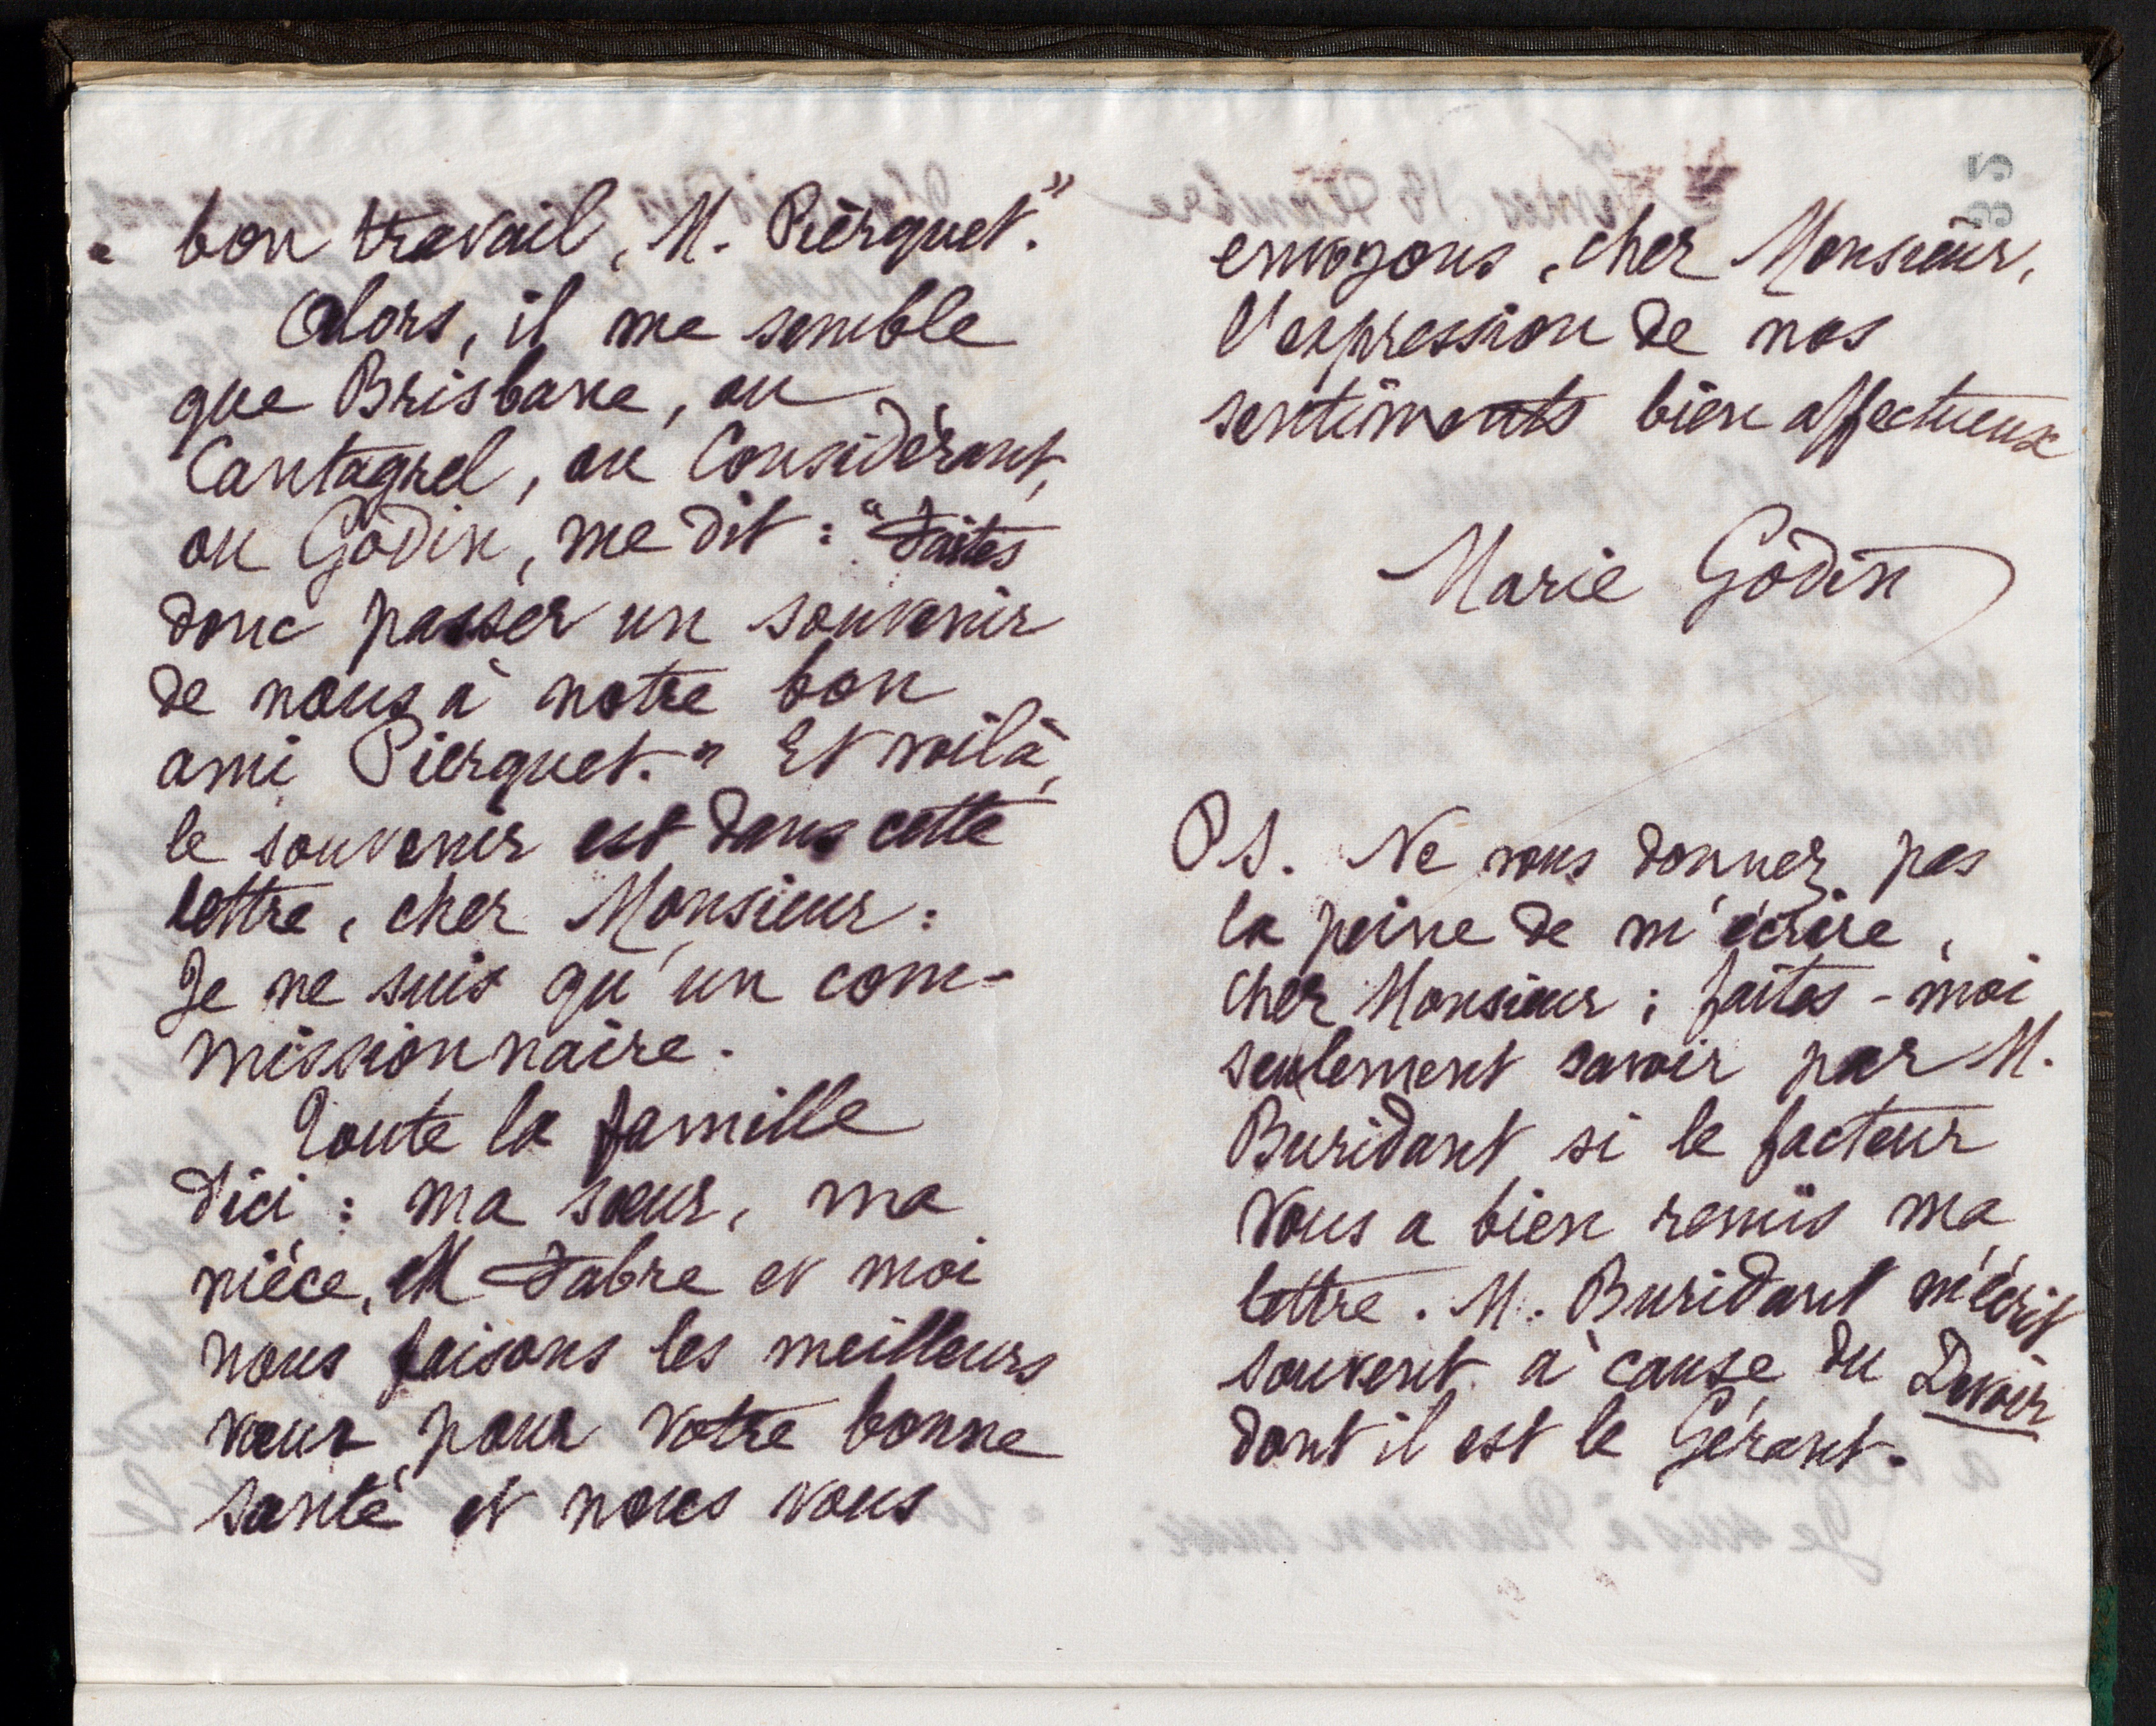 " bon travail, M. Pierquet."
Alors, il me semble
que Brisbane, ou
Cantagrel, ou Considérant,
ou Godin, me dit : "Faites
donc passer un souvenir
de nous à notre bon
ami Pierquet." Et voilà,
le souvenir est dans cette
lettre, cher Monsieur :
Je ne suis qu'un com-
missionnaire.
Toute la famille
d'ici : ma sœur, ma
nièce, M Fabre et moi
nous faisons les meilleurs
vœux pour votre bonne
santé et nous vous
envoyons, cher Monsieur,
l'expression de nos
sentiments bien affectueux
Marie Godin
PS. Ne vous donnez pas
la peine de m'écrire,
cher Monsieur ; faites-moi
seulement savoir par M.
Buridant si le facteur
vous a bien remis ma
lettre. M. Buridant m'écrit
souvent à cause du Devoir
dont il est le Gérant.